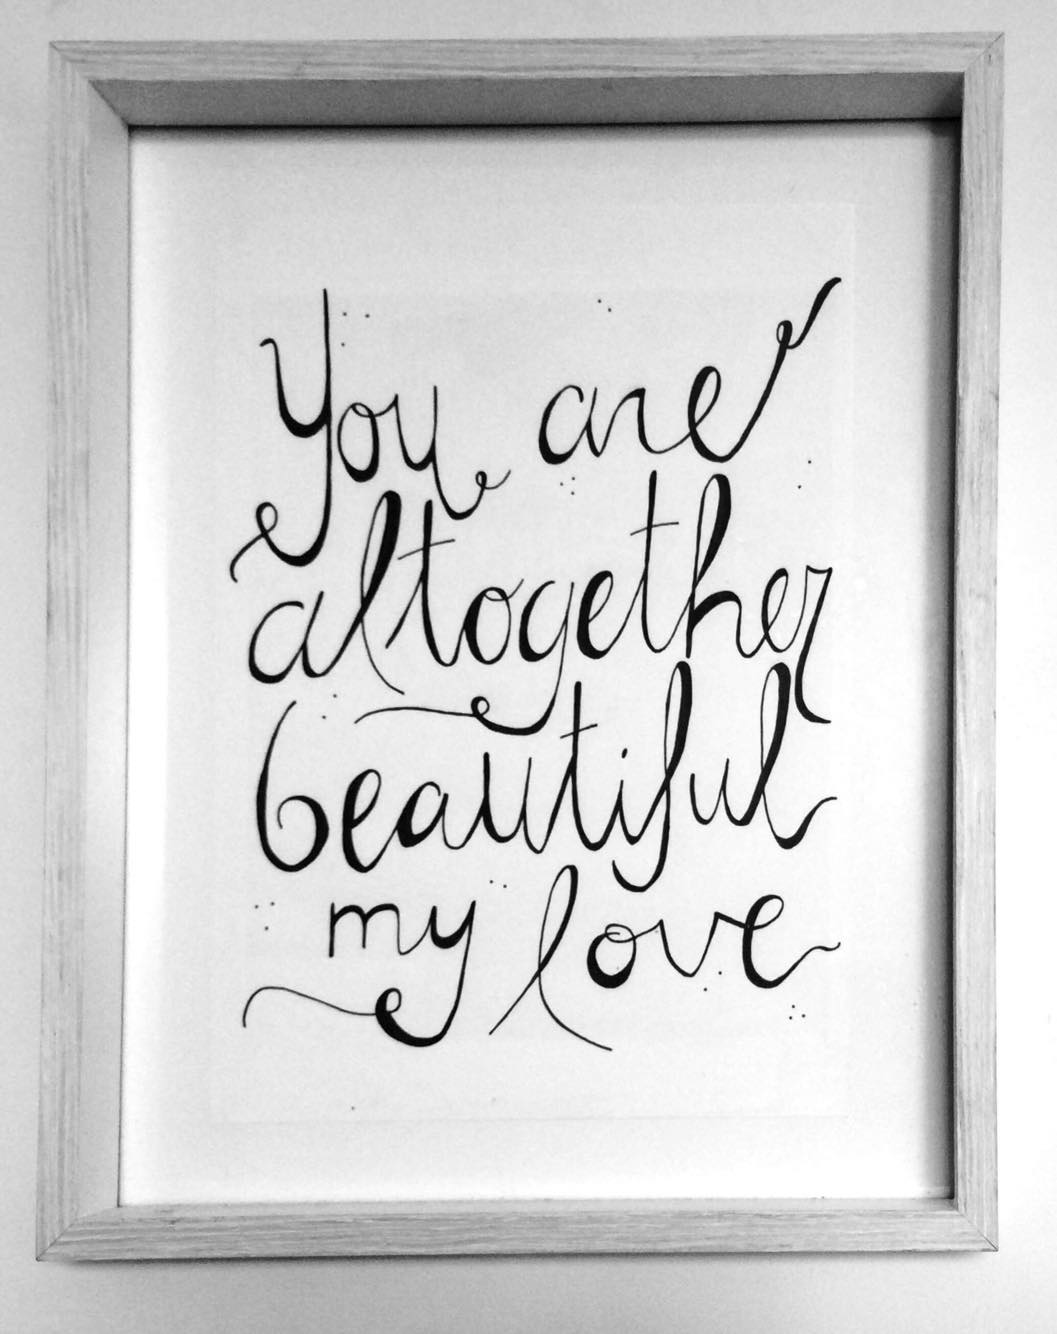 You are
altogether
beautiful
my love